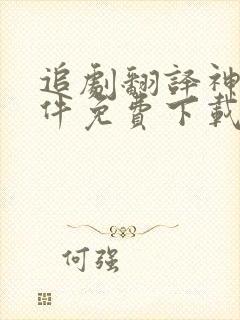 追劇翻譯神
件免費下載
何强